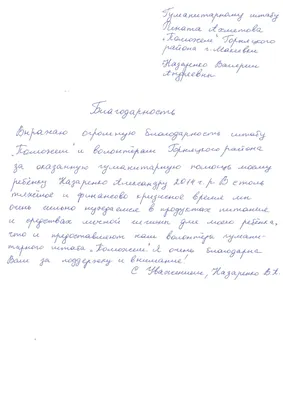 Гуманитарному штабу
Рината Ахметова
"Поможем" Горняцкого
района г. Макеевки
Назаренко Валерии
Андреевны
Благодарность
Выражаю огромную благодарность штабу
"Поможем" и волонтёрам Горняцкого района
за оказанную гуманитарную помощь моему
ребёнку Назаренко Александру 2014 г.р. В столь
тяжёлое и финансово кризисное время мы
очень сильно нуждаемся в продуктах питания
и средствах личной гигиены для моего ребёнка,
что и предоставляют нам волонтёры гумани-
тарного штаба "Поможем". Я очень благодарна
Вам за поддержку и внимание!
С Уважением, Назаренко В.А.